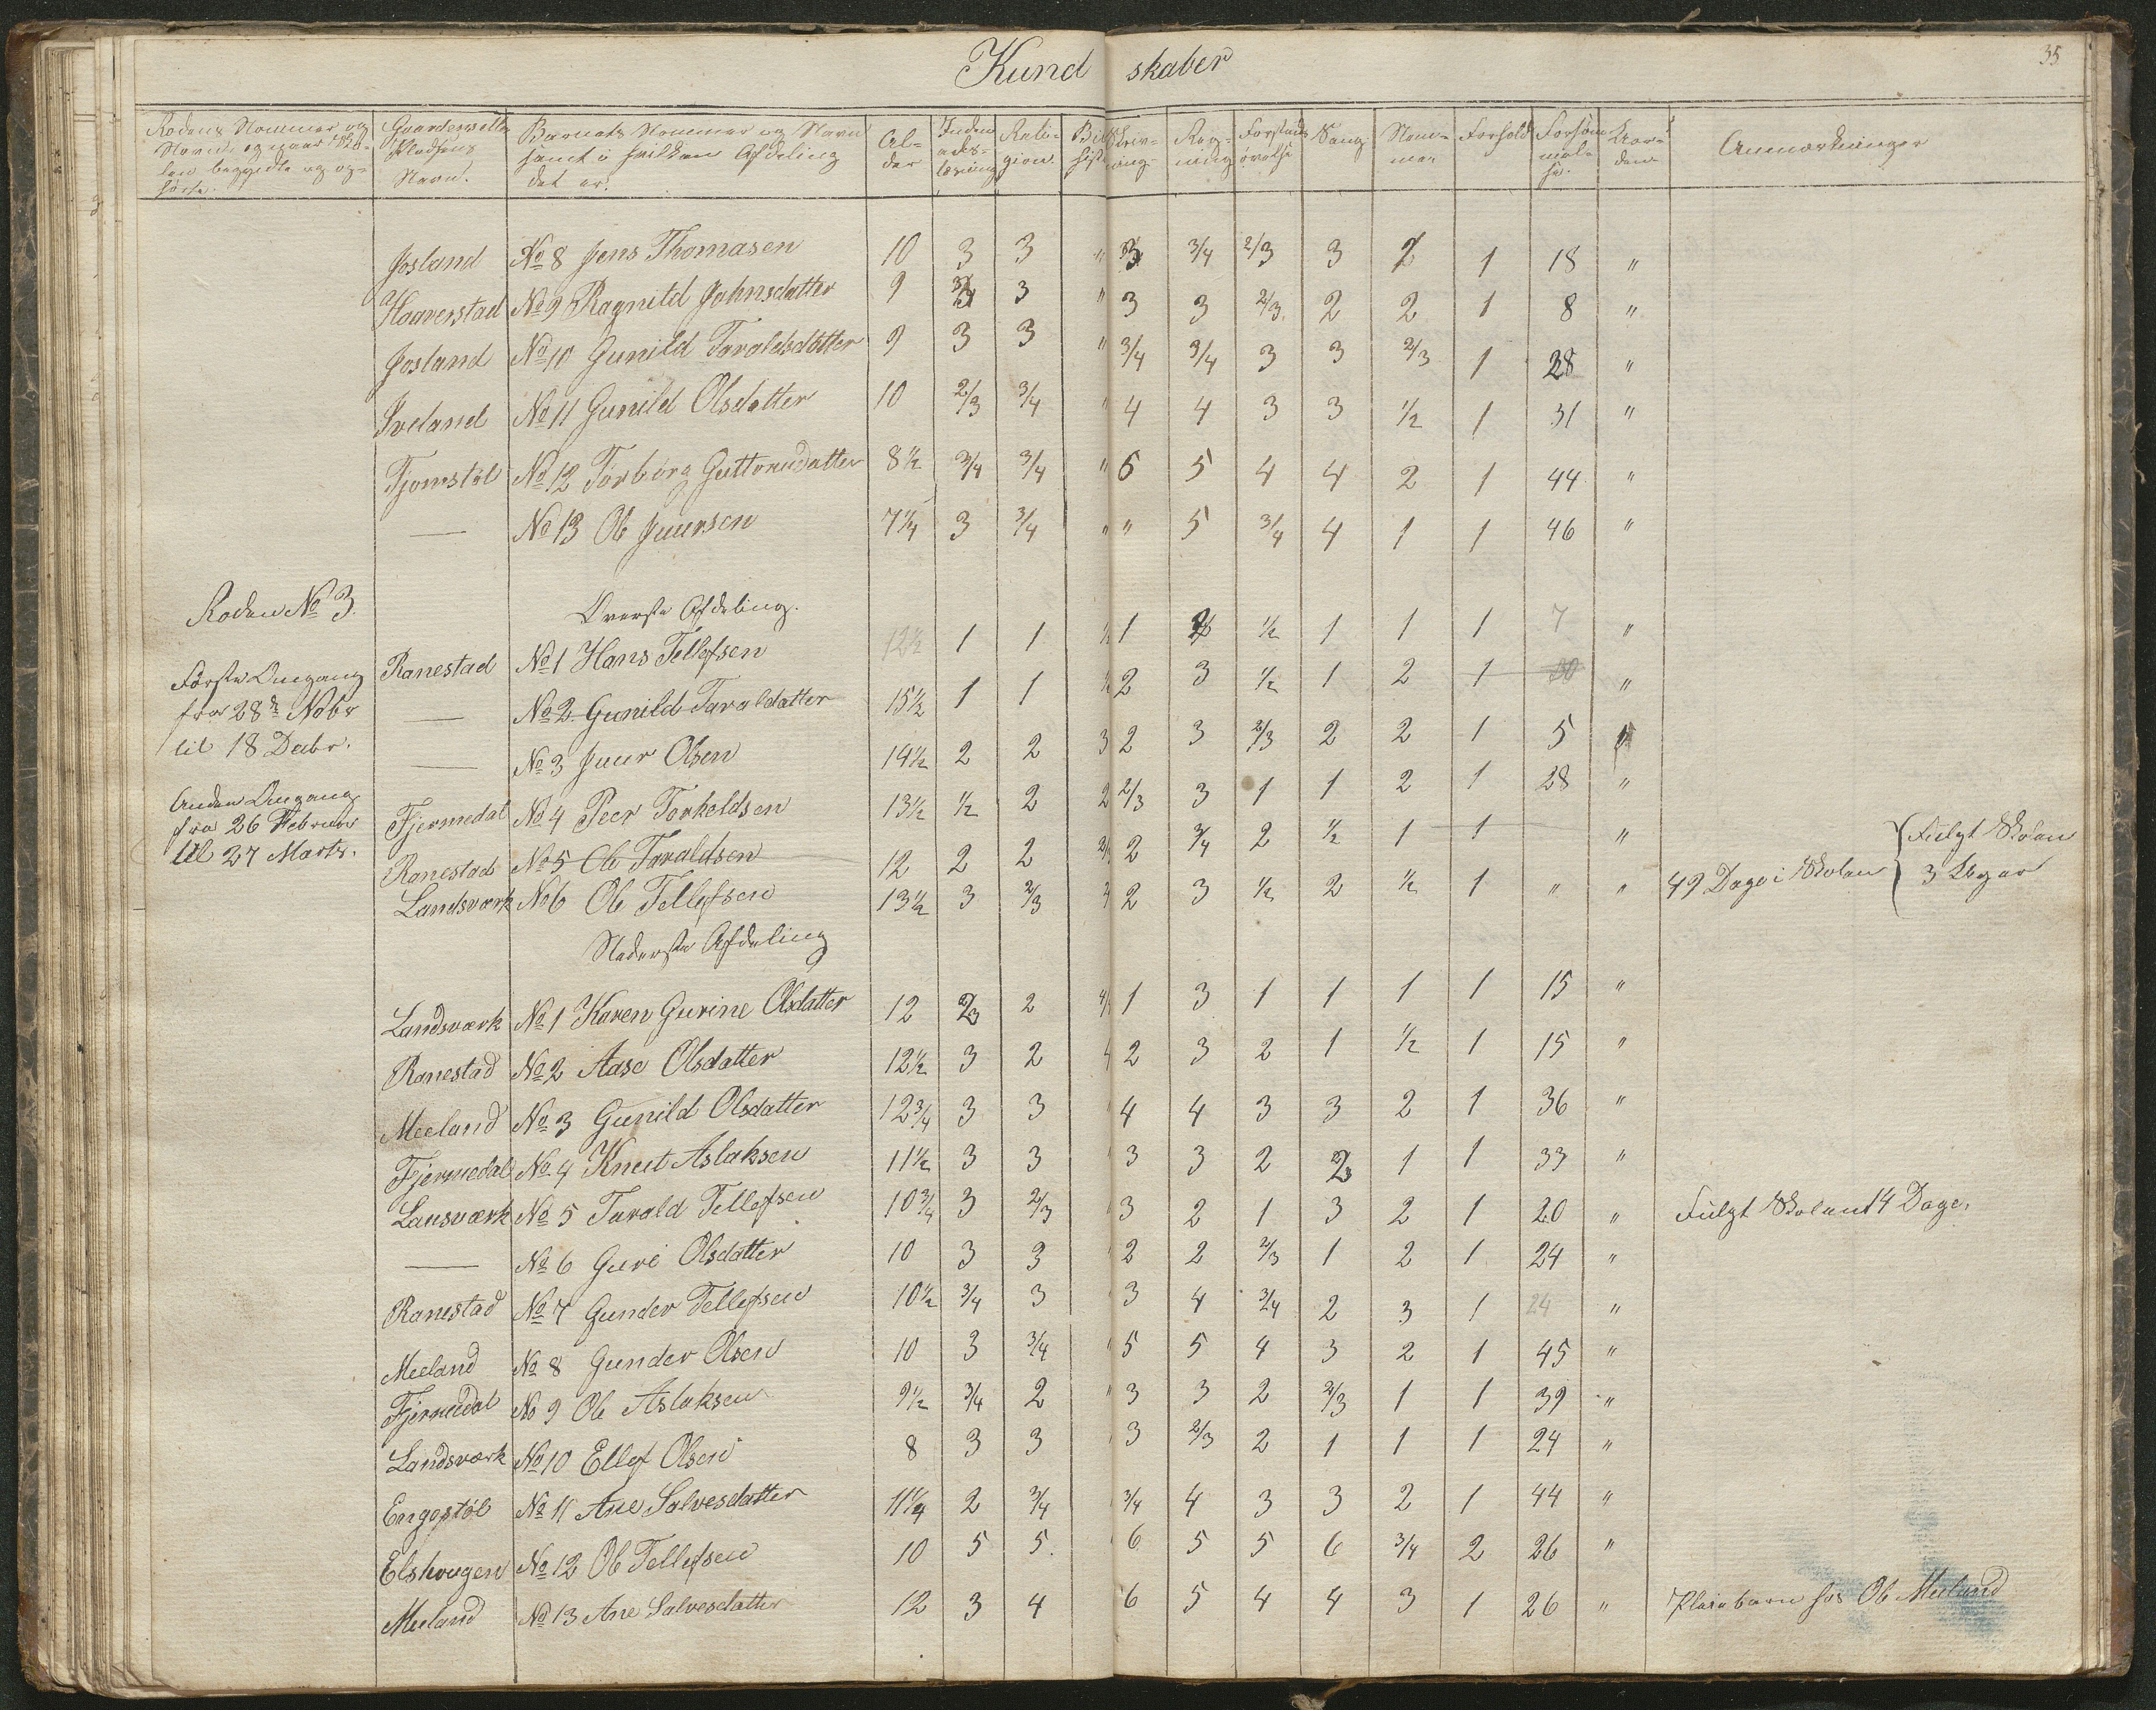 Kundskaber
35
Rodens Nommer og Navn, og naar Skolen begyndte og ophörte.
Gaardens eller Pladsens Navn.
Barnets Nommer og Navn samt i hvilken Afdeling det er.
Alder
Religion
Skrivning
Regning
Sang
Forhold
Forsömmelse
Anmærkninger
Josland No 8 Jens Thomasen 10 3 3 " 3 3/4 2/3 3 2 1 18 "
Haaverstad No 9 Ragnild Jahnsdatter 9 3/4 3 " 3 3 2/3 2 2 1 8 "
Josland No 10 Gunild Taraldsdatter 9 3 3 " 3/4 3/4 3 3 2/3 1 28 "
Iveland No 11 Gunild Olsdatter 10 2/3 3/4 " 4 4 3 3 1/2 1 31 "
Tjomstöl No 12 Torborg Guttormsdatter 8 1/2 3/4 3/4 " 6 5 4 4 2 1 44 "
— No 13 Ole Juursen 7 1/4 3 3/4 " " 5 3/4 4 1 1 46 "
Roden No 3.
Överste Afdeling.
Förste Omgang
fra 28de Nobr
til 18 Decbr.
Ranestad No 1 Hans Tellefsen 12 1/2 1 1 1 1/2 1 1 1 7 "
— No 2 Gunild Taraldatter 15 1/2 1 1 2 3 1/2 1 2 1 "
— No 3 Juur Olsen 14 1/2 2 2 3 2 3 2/3 2 2 1 5 "
Anden Omgang
fra 26 Februar
til 27 Marts.
Fjermedal No 4 Peer Torkeldsen 13 1/2 1/2 2 2 2/3 3 1 1 2 1 28 "
Ranestad No 5 Ole Taraldsen 12 2 2 2/3 2 3/4 2 1/2 1 1 "
Landsværk No 6 Ole Tellefsen 13 1/2 3 2/3 2 3 1/2 2 1/2 1 " " 49 Dage i Skolen { Fulgt Skolen
3 Uger
Nederste Afdeling
Landsværk No 1 Karen Gurine Olsdatter 12 2/3 2 1 3 1 1 1 1 15 "
Ranestad No 2 Aase Olsdatter 12 1/2 3 2 2 3 2 1 1/2 1 15 "
Meeland No 3 Gunild Olsdatter 12 3/4 3 3 4 4 3 3 2 1 36 "
Fjermedal No 4 Knut Aslaksen 11 1/2 3 3 3 3 2 2/3 1 1 33 "
Lansværk No 5 Tarald Tellefsen 10 3/4 3 2/3 3 2 1 3 2 1 20 " Fulgt Skolen 14 Dage.
— No 6 Guri Olsdatter 10 3 3 2 2 2/3 1 2 1 24 "
Ranestad No 7 Gunder Tellefsen 10 1/2 3/4 3 3 4 3/4 2 3 1 24 "
Meeland No 8 Gunder Olsen 10 3 3/4 5 5 4 3 2 1 45 "
Fjermedal No 9 Ole Aslaksen 9 1/2 3/4 2 " 3 3 2 2/3 1 1 39 "
Landsværk No 10 Ellef Olsen 8 3 3 3 2/3 2 1 1 1 24 "
Engestöl No 11 Ane Salvesdatter 11 1/4 2 3/4 3/4 4 3 3 2 1 44 "
Elshougen No 12 Ole Tellefsen 10 5 5 6 5 5 6 3/4 2 26 "
Meeland No 13 Ane Salvesdatter 12 3 4 6 5 4 4 3 1 26 " Pleiebarn hos Ole Meeland